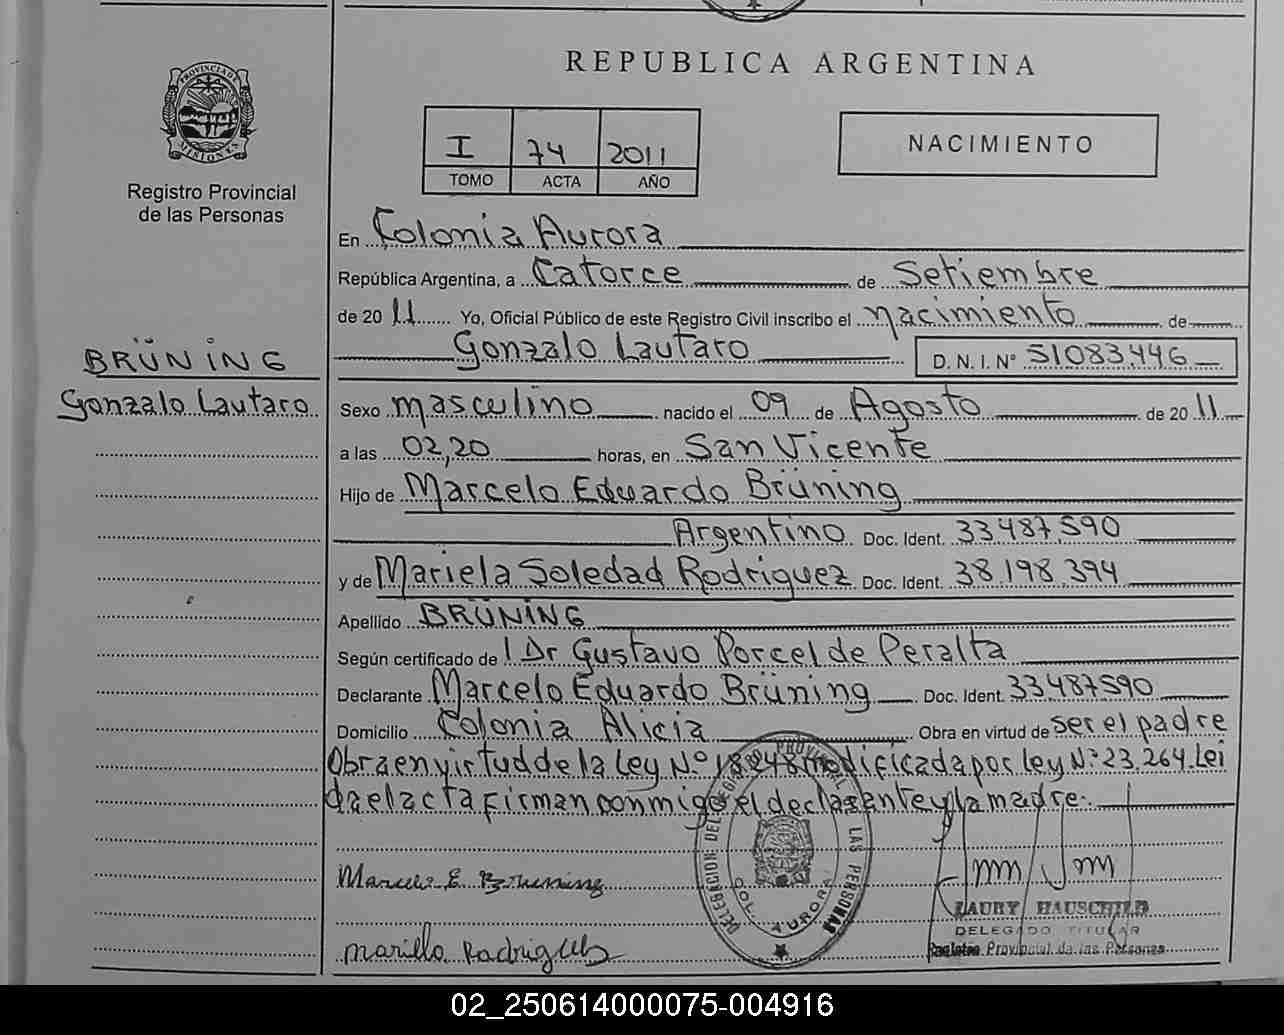 REPUBLICA ARGENTINA
PROVINCIA DE
MISIONES
Registro Provincial
de las Personas
I 74 2011
TOMO ACTA AÑO
NACIMIENTO
En Colonia Aurora
República Argentina, a Catorce de Setiembre
de 2011 Yo, Oficial Público de este Registro Civil inscribo el nacimiento de
Gonzalo Lautaro D. N. I. Nº 51083446
BRÜNING
Gonzalo Lautaro
Sexo masculino nacido el 09 de Agosto de 2011
a las 02,20 horas, en San Vicente
Hijo de Marcelo Eduardo Brüning
Argentino Doc. Ident. 33.487.590
y de Mariela Soledad Rodriguez Doc. Ident. 38.198.394
Apellido BRÜNING
Según certificado de Dr Gustavo Porcel de Peralta
Declarante Marcelo Eduardo Brüning Doc. Ident. 33487590
Domicilio Colonia Alicia Obra en virtud de ser el padre
Obra en virtud de la Ley Nº 18.248 modificada por ley Nº 23.264. Lei
da el acta firman conmigo el declarante y la madre.
DELEGACION DEL REGISTRO PROVINCIAL DE LAS PERSONAS
COL. AURORA
Marcelo E. Brüning
LAURY HAUSCHILD
DELEGADO TITULAR
Registro Provincial de las Personas
02_250614000075-004916